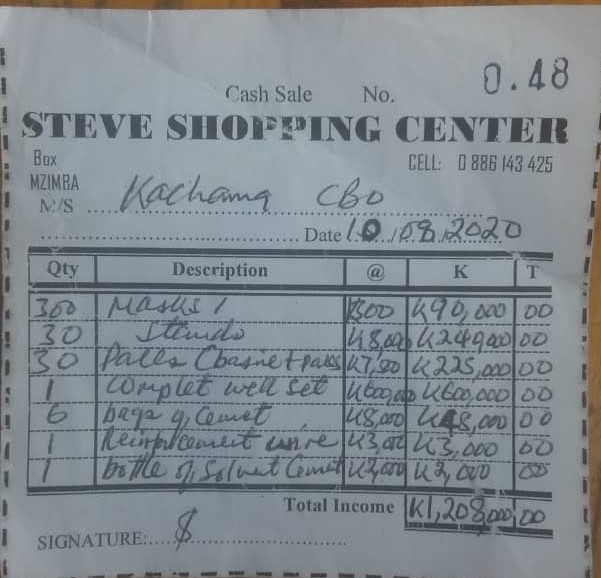 0.48
Cash Sale No.
STEVE SHOPPING CENTER
Box CELL: 0 886 143 425
MZIMBA
M/S Kachama CBO
Date 10/08/2020
Qty Description @ K T
300 Masks K90,000 00
30 K8,000 K240,000 00
30 Pails K7,500 K225,000 00
1 Complet well set K600,000 K600,000 00
6 bags of Cemet K8,000 K48,000 00
1 Reinforcement wire K3,000 K3,000 00
1 bottle of Solvent Cemet K2,000 K2,000 00
Total Income K1,208,000 00
SIGNATURE: